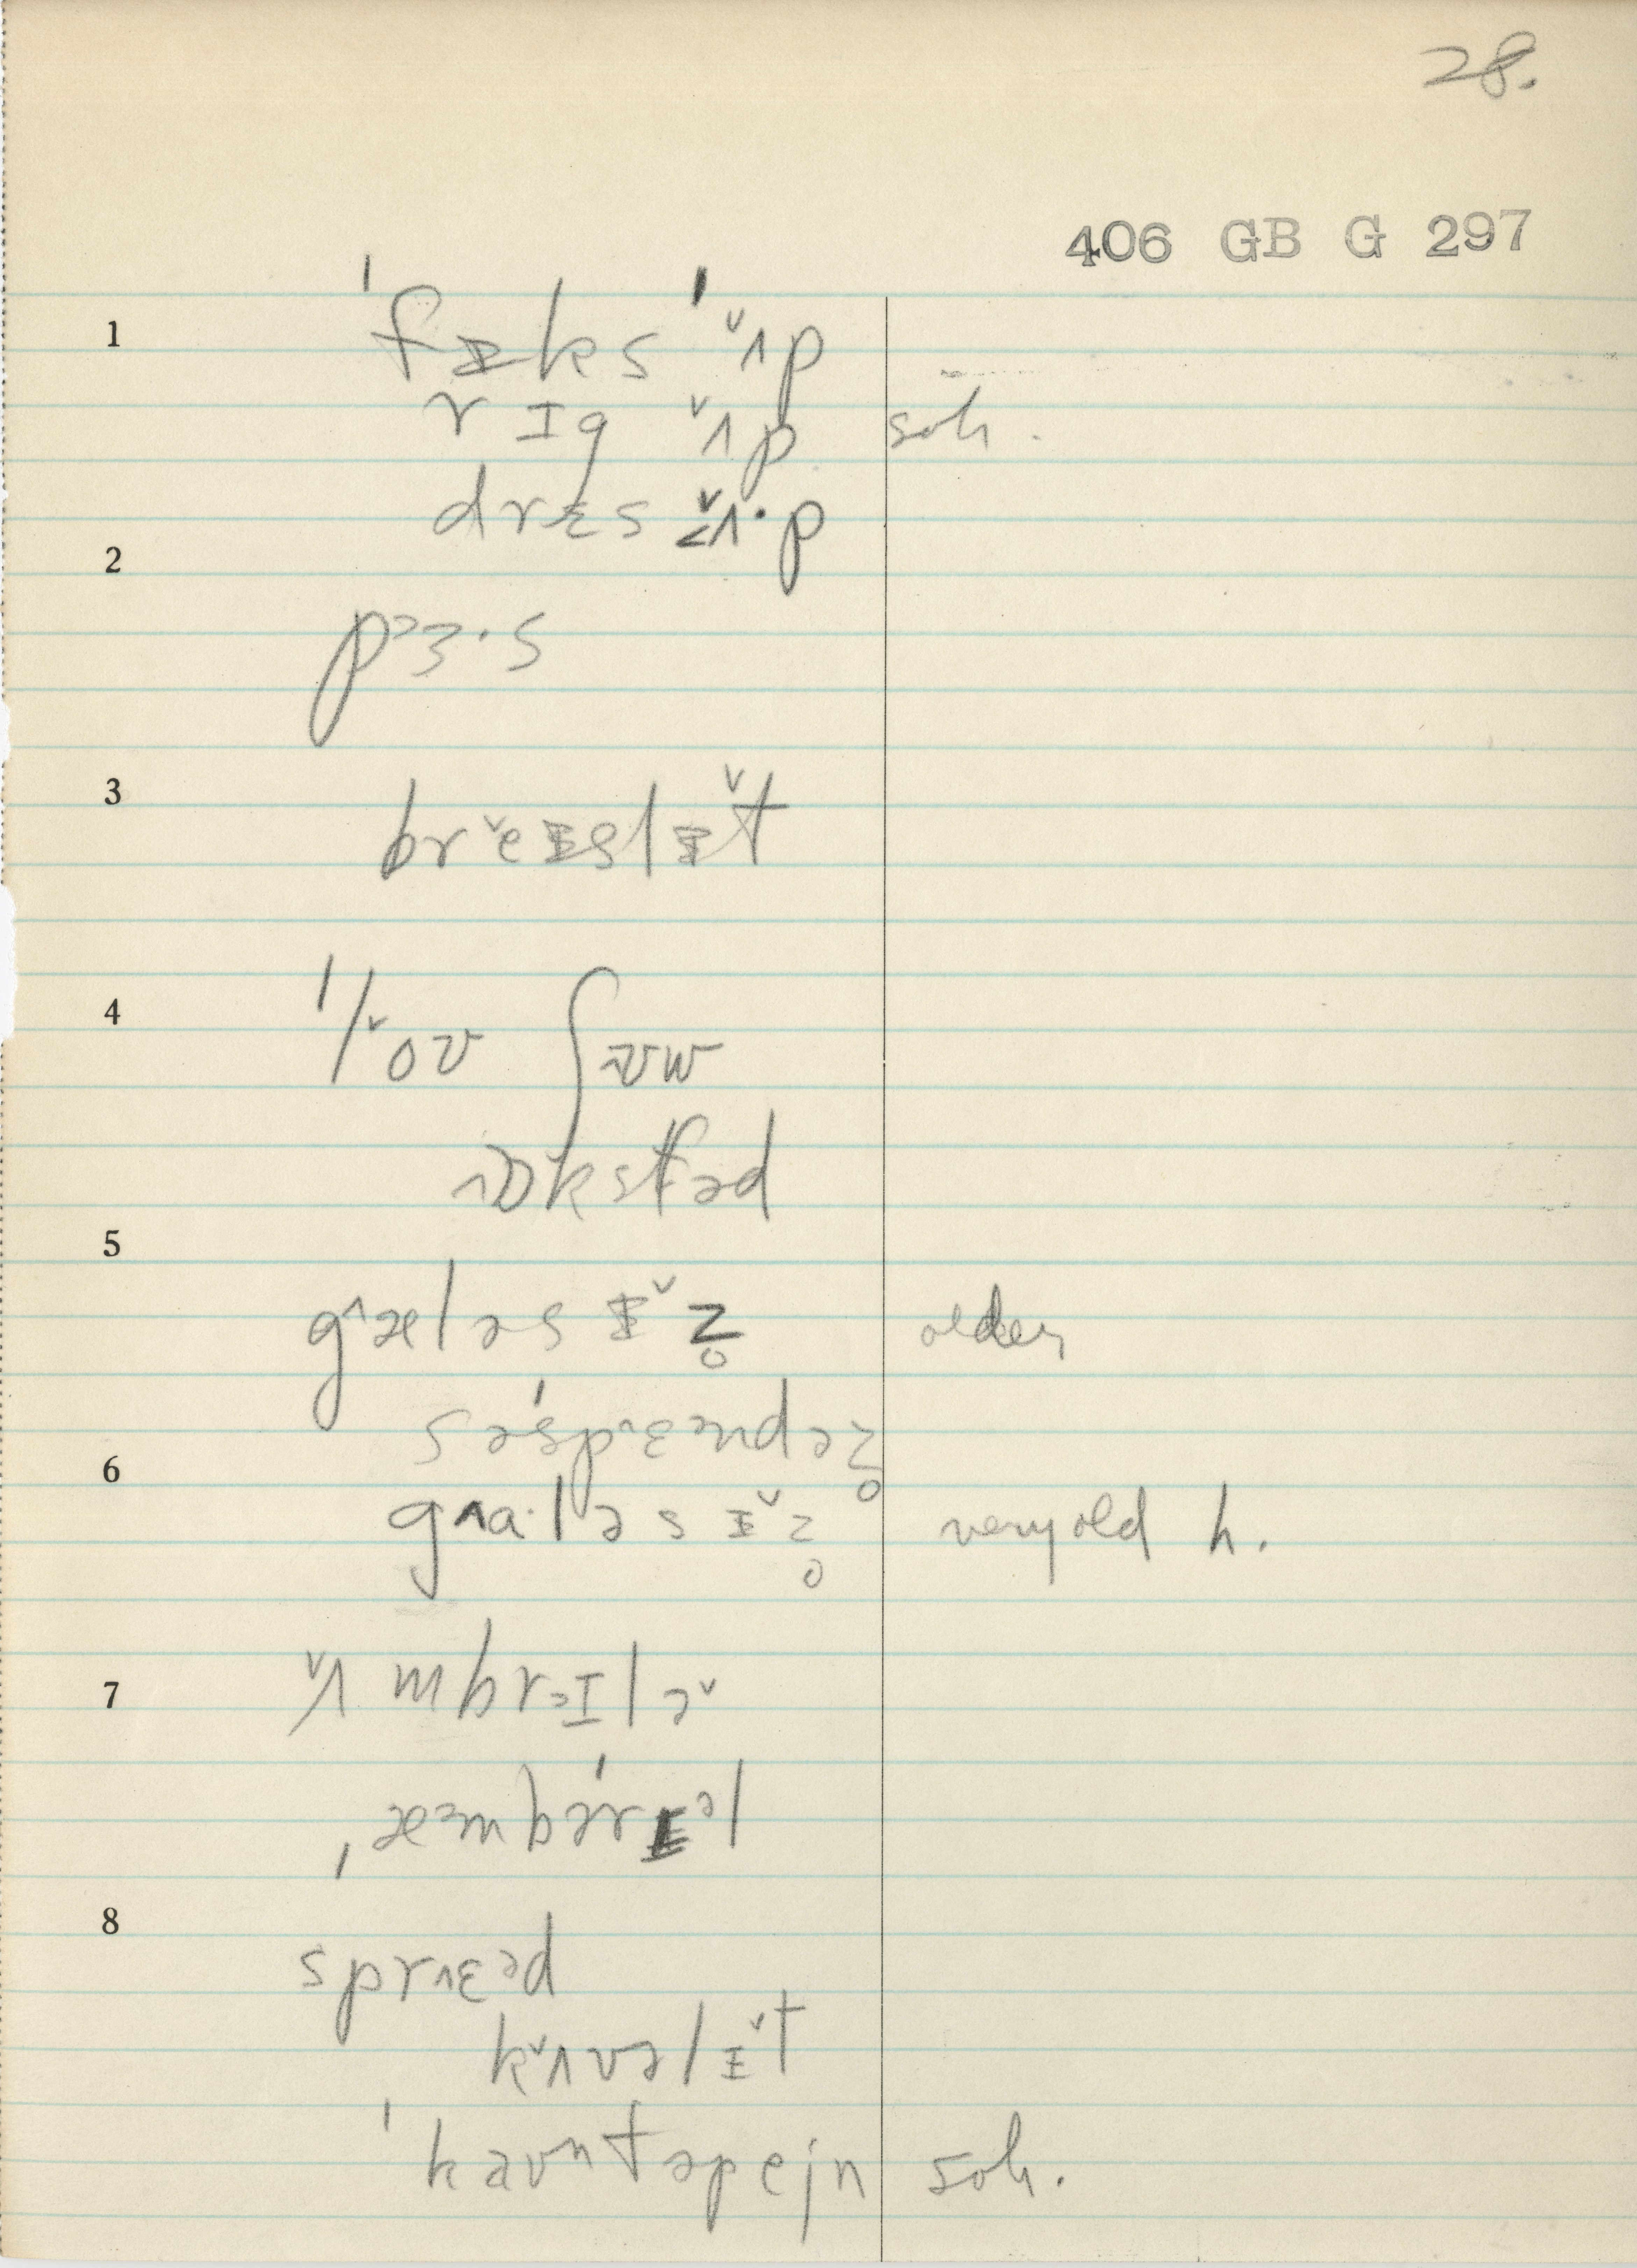 28.
406 GB G 297
1 ˈfɪks ˈʌ̌p
rɪg ʌ̌p soh.
drɛs ʌ̌·p
2
pᵊɜ·s
3 brěɪslɪ̌t
4 ˈlǒʊ ʃuw
ɒkstfəd
5
gæləsɪ̌z̥ older
səˈspɛᵊndəz̥
6
ga·ləsɪ̌z̥ very old h.
7 ʌ̌mbrəɪlə̌
ˌæᵊmbəˈrɛᵊl
8
sprɛᵊd
kʌ̌vəlɪ̌t
ˈkaʊntəpejn soh.